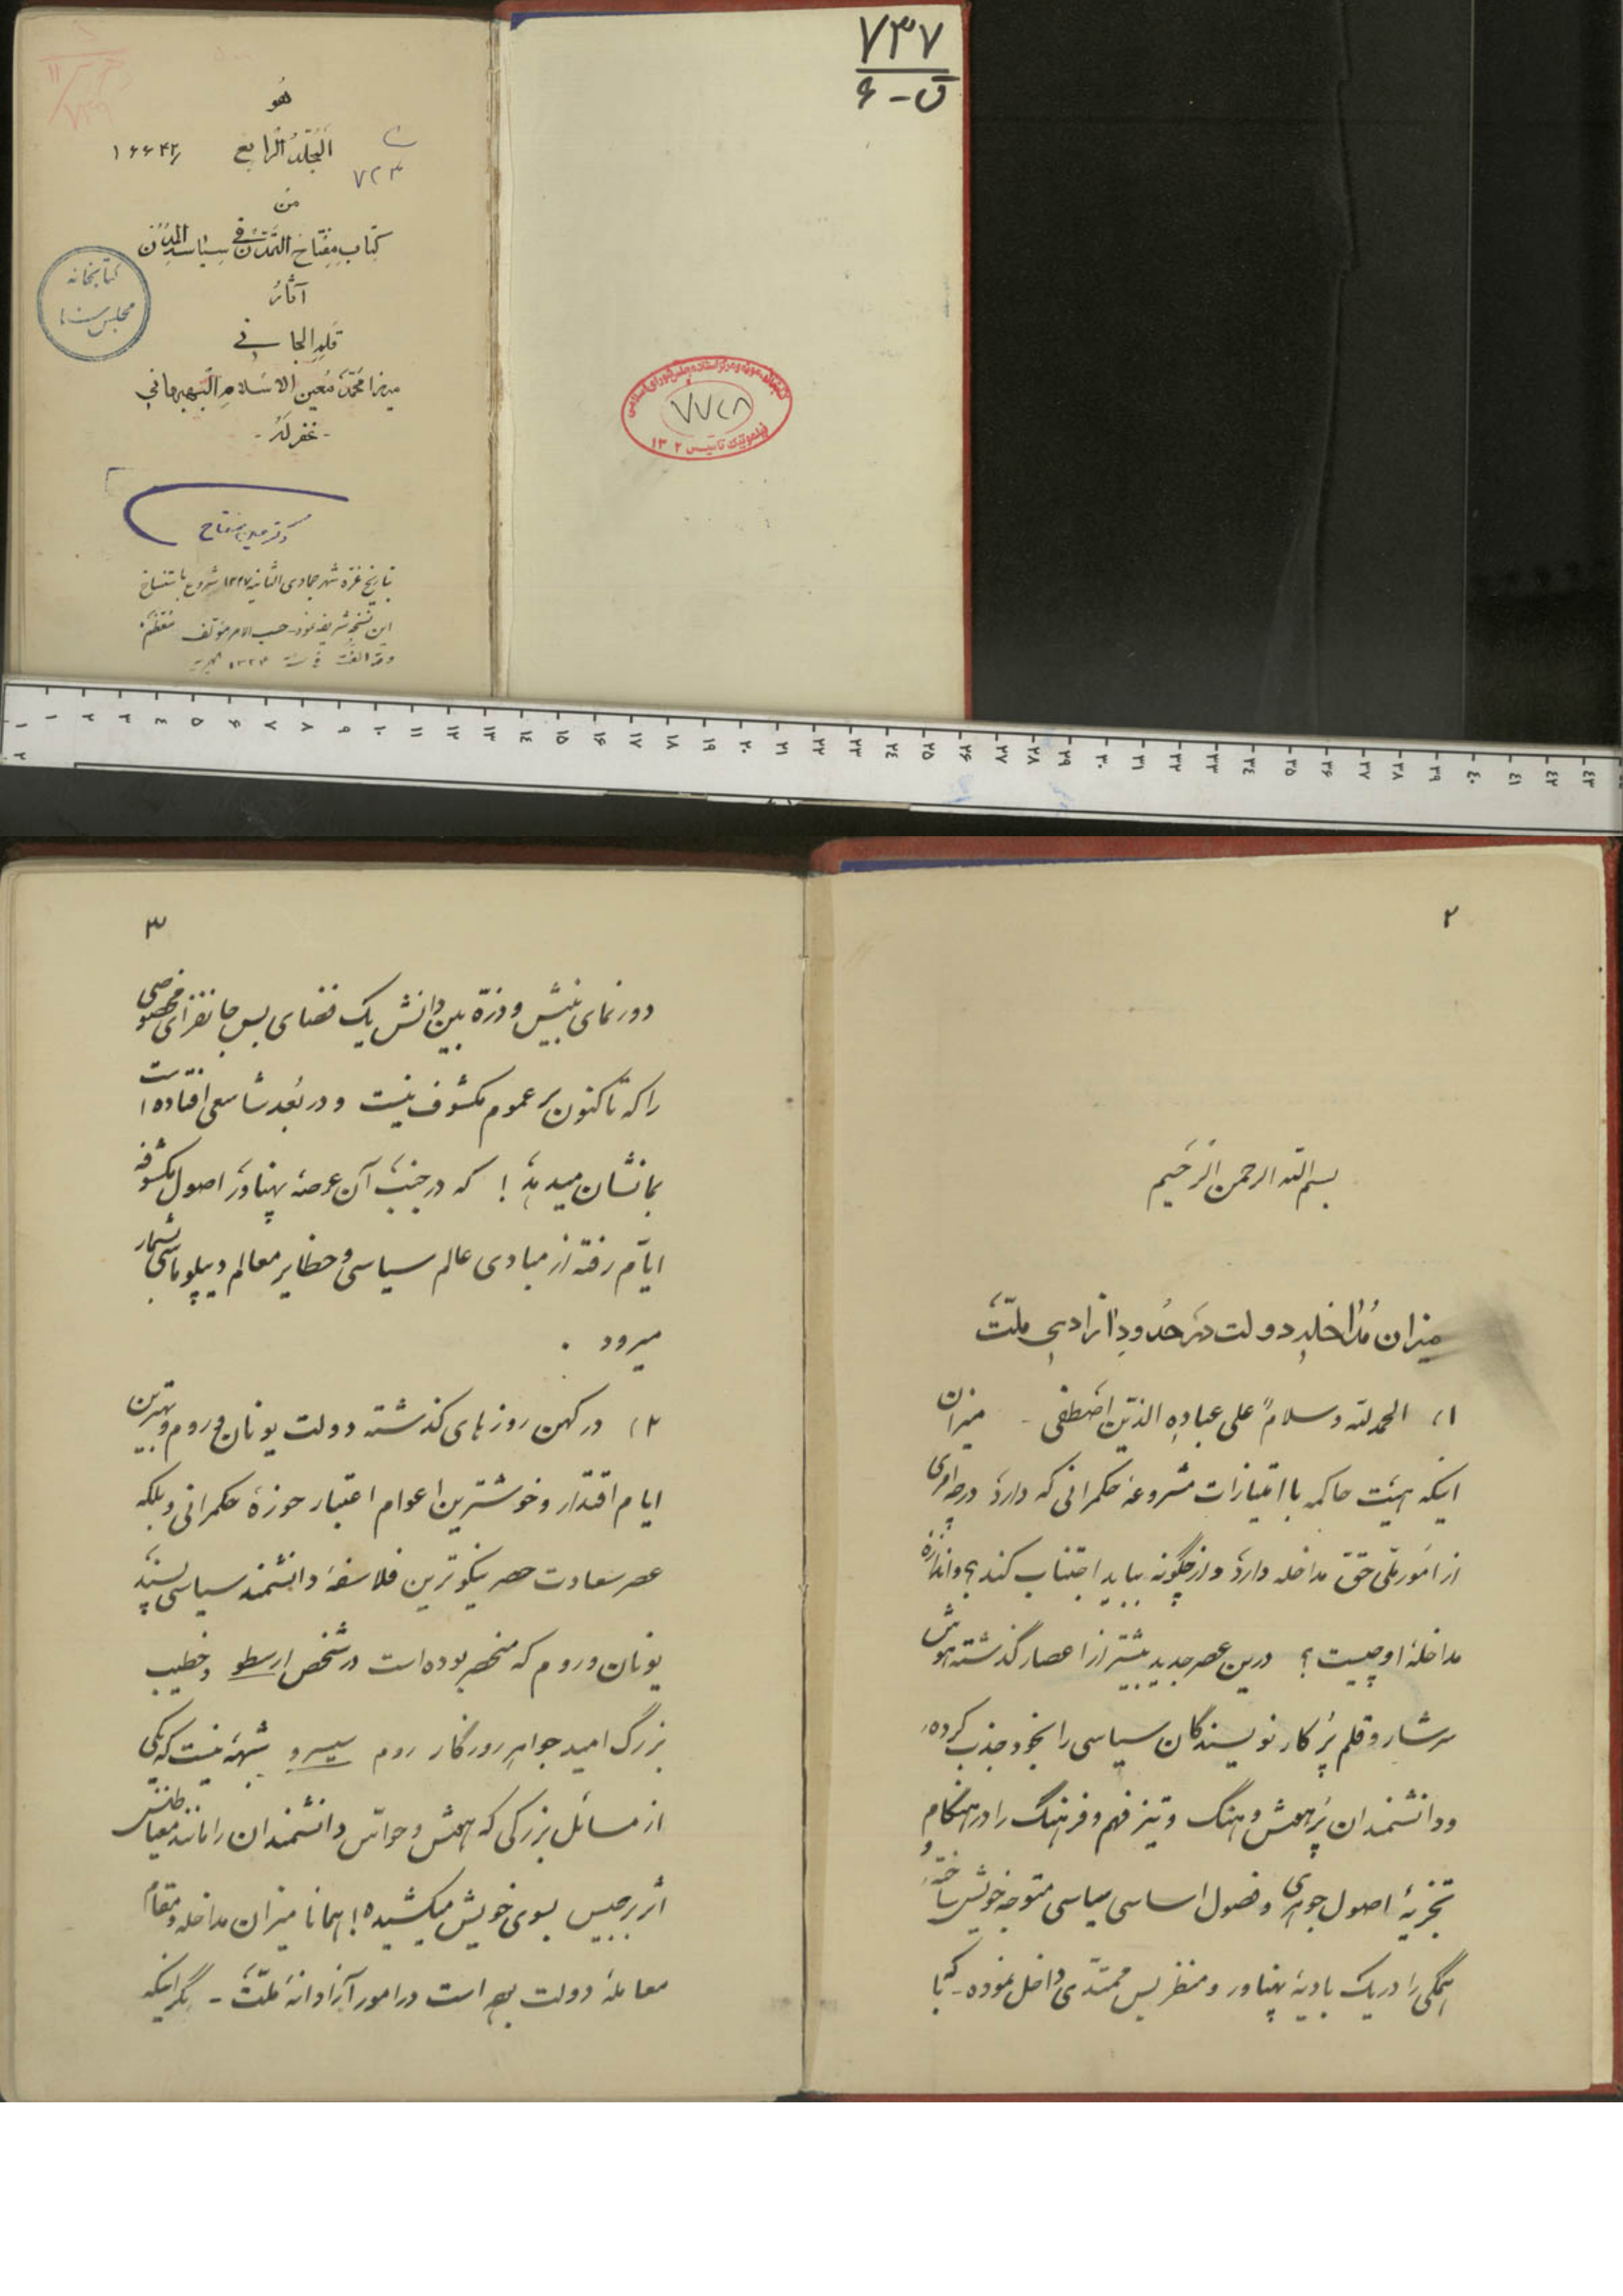 ۷۳۷
ق - ۶
هُو
اَلْمُجَلَّدُ الرّابِع
۱۶۶۴۲
۷۲۳
مِن
كِتابِ مِفْتاحِ التَّمَدُّن في سِياسَةِ المُدُن
آثارُ
قَلَمِ الجاني
ميرزا مُحَمَّد مُعين الاسْلامِ البَهبَهاني
- غفر لَهُ -
كتابخانه
مجلس سنا
۷۷۲۸
دکتر معین مفتاح
بتاریخ غره شهر جمادی الثانیه ۱۳۲۷ شروع باستنساخ
این نسخه شریفه نمود حسب الامر مؤلف معظم
و قد الفت فی سنه ۱۳۲۴ هجریه
۲
بسم الله الرحمن الرّحیم
میزان مُداخلهٔ دولت در حُدودِ آزادیِ ملّت
(۱ الحمد لله و سلامٌ علی عباده الذّین اصطفی - میزان
اینکه هیئت حاکمه با امتیازات مشروعهٔ حکمرانی که دارد در چه امری
از امور ملّی حقّ مداخله دارد و از چگونه بباید اجتناب کند؟ و اندازهٔ
مداخلهٔ او چیست؟ درین عصر جدید بیشتر از اعصار گذشته هوش
سرشار و قلم پُر کار نویسندگان سیاسی را بخود جذب کرده،
و دانشمندان پُر هُش و هنگ و تیز فهم و فرهنگ را در هنگام
تجزیهٔ اصول جوهری و فصول اساسی سیاسی متوجه خویش ساخته، و
همگی را در یک بادیهٔ پهناور و منظر بس ممتدّی داخل نموده - که با
۳
دورنمای بینش و ذرّه بین دانش یک فضای بس جانفزای مخصوصی
را که تاکنون بر عموم مکشوف نیست و در بُعد شاسعی افتاده است
بما نشان میدهد! که در جنب آن عرصهٔ پهناور اصول مکشوفهٔ
ایّام رفته از مبادی عالم سیاسی و حظایر معالم دیپلوماسی بشمار
میرود .
(۲ در کهن روزهای گذشته دولت یونان و روم و بهترین
ایام اقتدار و خوشترین اعوام اعتبار حوزهٔ حکمرانی و بلکه
عصر سعادت حصر نیکوترین فلاسفهٔ دانشمند سیاسی پسند
یونان و روم که منحصر بوده است در شخص ارسطو و خطیب
بزرگ امید جواهر روزگار روم سیسرو شبهه نیست که یکی
از مسائل بزرگی که هُش و حواس دانشمندان را مانند مغناطیس
اثر برجیس بسوی خویش میکشیده! همانا میزان مداخله و مقام
معاملهٔ دولت بهر است در امور آزادانهٔ ملّت - مگر اینکه